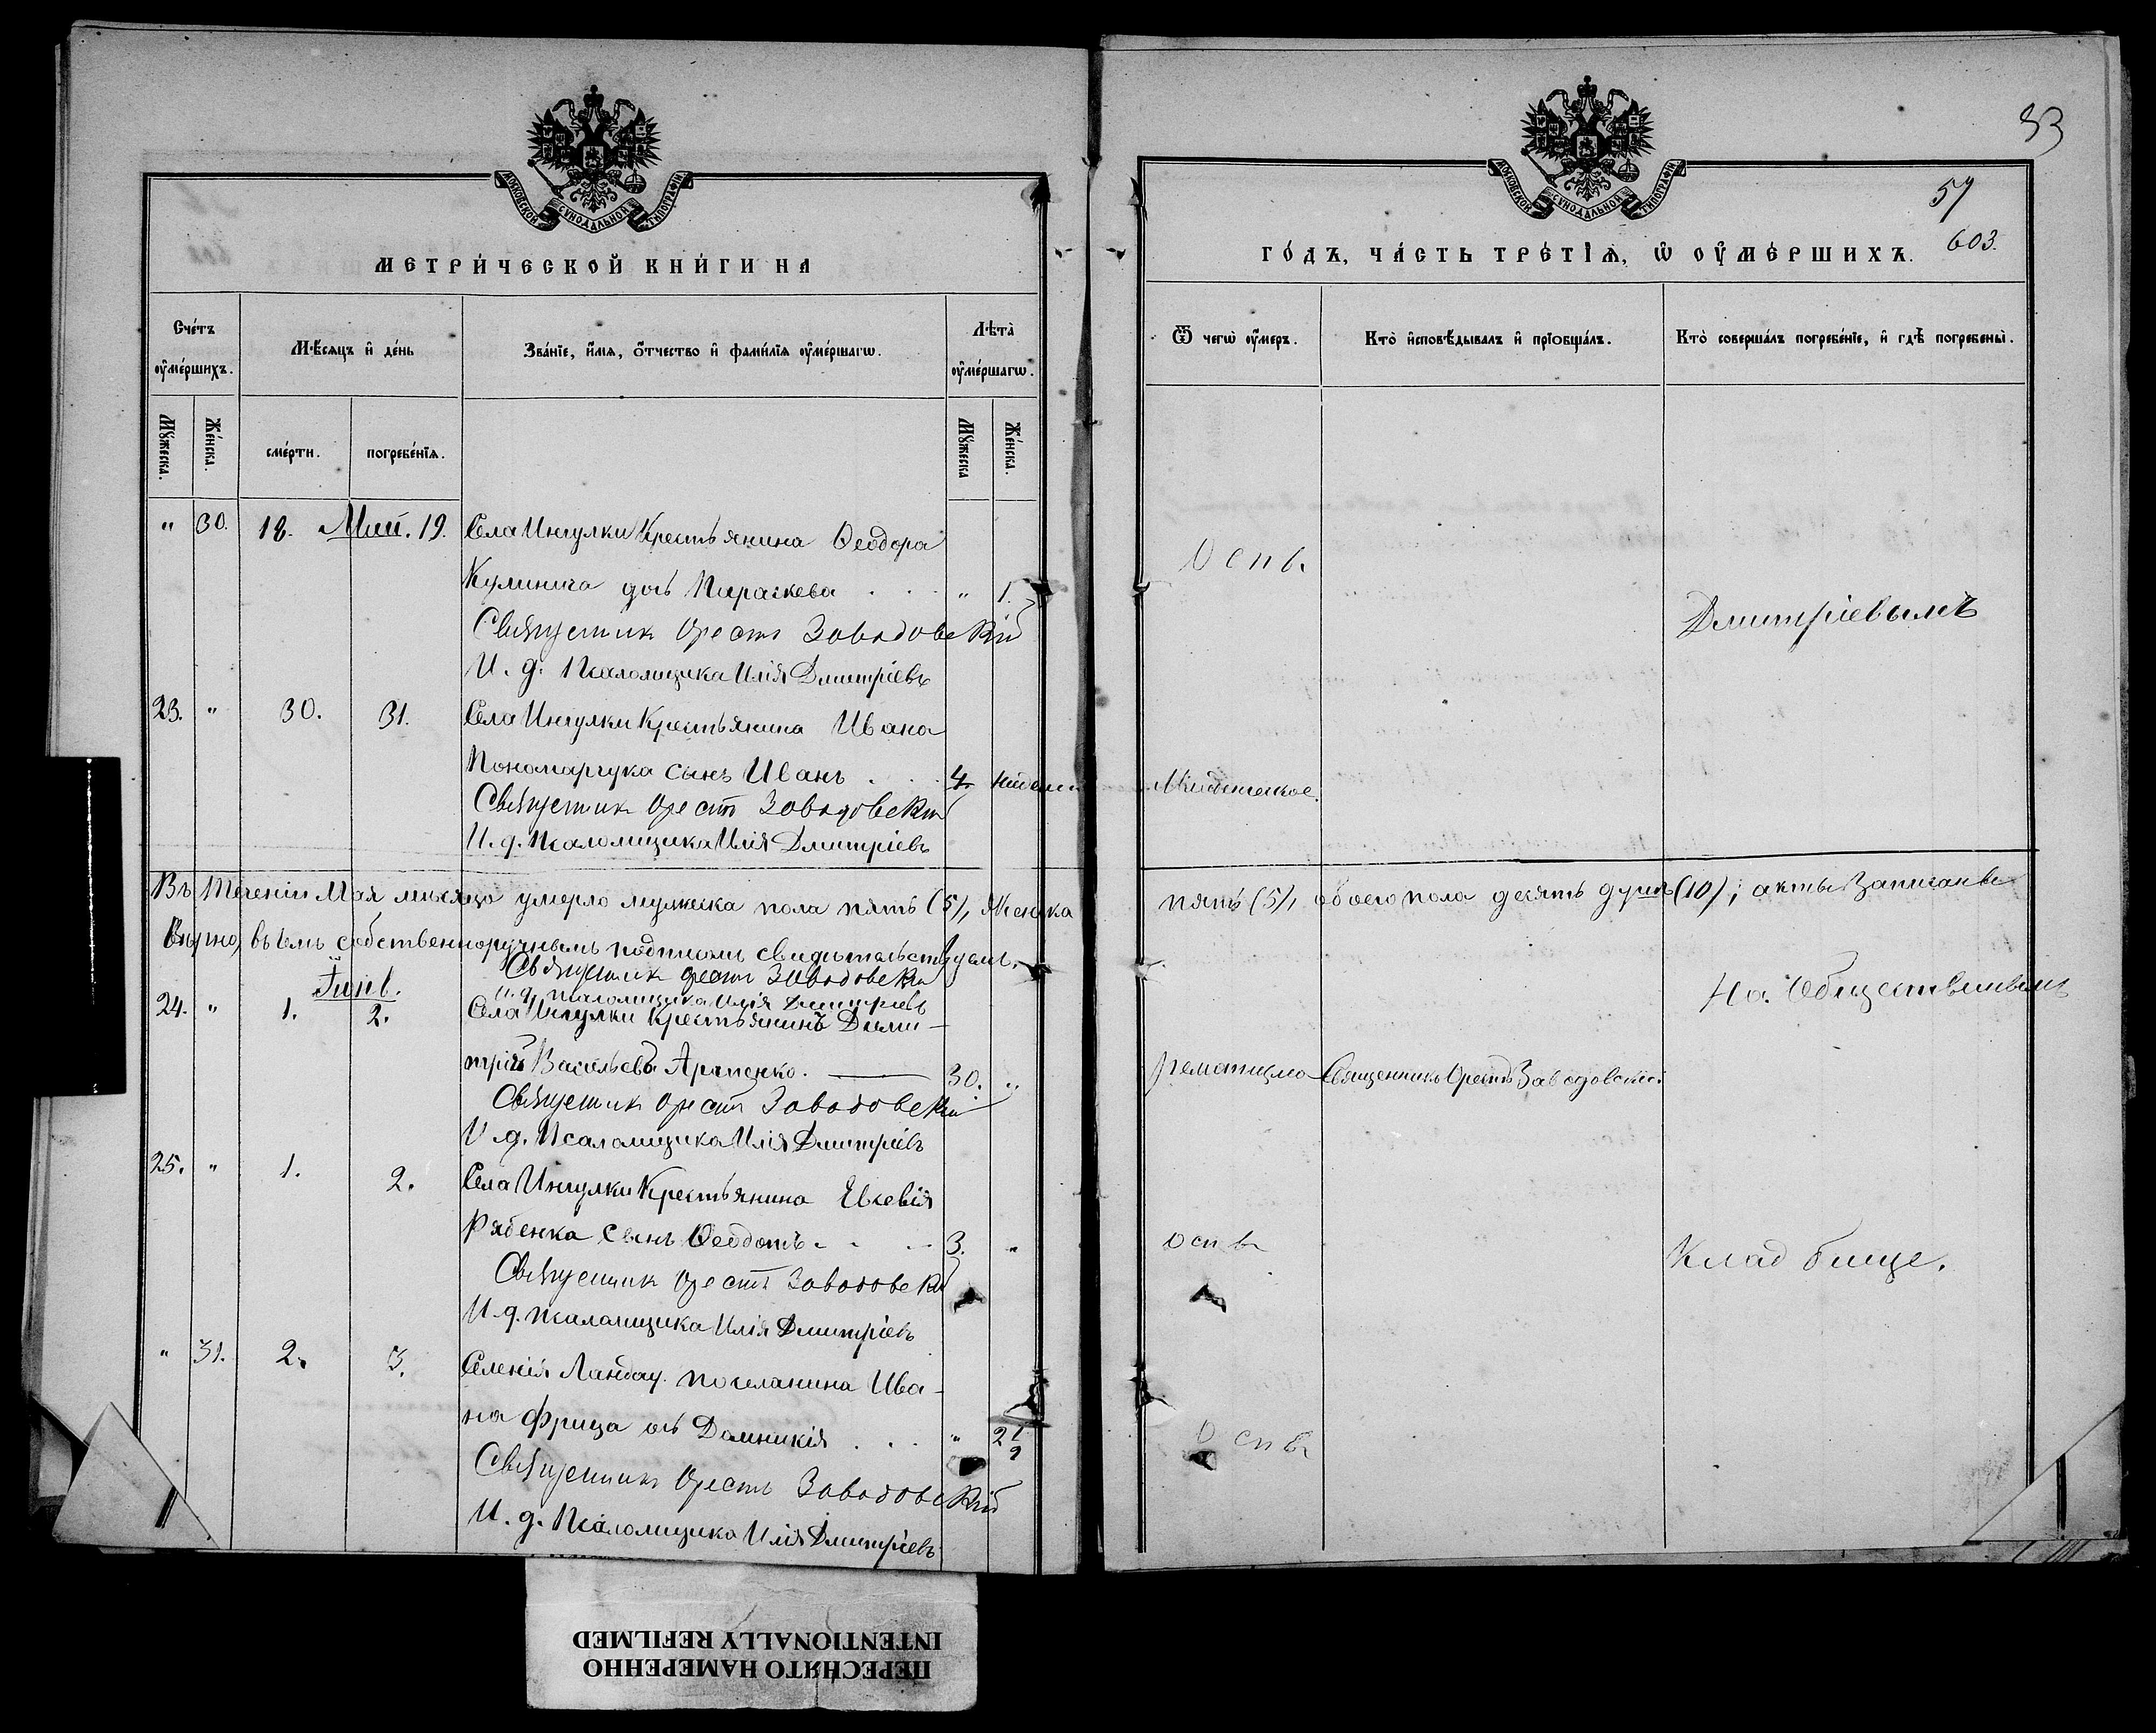 МОСКОВСКОЙ СѴНОДАЛЬНОЙ ТИПОГРАФІИ
МЕТРИ́ЧЕСКОЙ КНИ́ГИ НА
Сче́тъ ᲂу҆ме́ршихъ.
Мѣ́сяцъ и҆ де́нь
Зва́нїе, и҆́мѧ, ѻ҆́тчество и҆ фами́лїѧ ᲂу҆ме́ршагѡ.
Лѣ́та ᲂу҆ме́ршагѡ.
Мꙋ́жеска.
Же́нска.
сме́рти.
погребе́нїѧ.
Мꙋ́жеска
Же́нска.
" 30. 18. Май. 19. Села Ингулки Крестьянина Ѳеодора
Кулинича дочь Параскева . . . " 1.
Священникъ Орестъ Заводовскій
И. д. Псаломщика Илія Дмитріевъ
23. " 30. 31. Села Ингулки Крестьянина Ивана
Пономарчука сынъ Иванъ . . . 4.
Священникъ Орестъ Заводовскій
И. д. Псаломщика Илія Дмитріевъ
Въ теченіи Мая мѣсяца умерло мужеска пола пять (5), женска
Вѣрно, въ чемъ собственноручнымъ подписомъ свидѣтельствуемъ.
Священникъ Орестъ Заводовскій
Іюнь.
И. д. Псаломщика Илія Дмитріевъ
24. " 1. 2. Села Ингулки Крестьянинъ Дими-
трій Васильевъ . 30. "
Священникъ Орестъ Заводовскій
И. д. Псаломщика Илія Дмитріевъ
25. " 1. 2. Села Ингулки Крестьянина Евсевія
Рябенка сынъ Ѳеодотъ . . . 3. "
Священникъ Орестъ Заводовскій
И. д. Псаломщика Илія Дмитріевъ
" 31. 2. 3. Селенія Ландау поселянина Ива-
на Фрица дочь Домникія . . . " 2 1/2
Священникъ Орестъ Заводовскій
И. д. Псаломщика Илія Дмитріевъ
33
МОСКОВСКОЙ СѴНОДАЛЬНОЙ ТИПОГРАФІИ
57
603.
ГО́ДЪ, ЧА́СТЬ ТРЕ́ТЇѦ, Ѡ҆ ᲂУ҆МЕ́РШИХЪ.
Ѿ чегѡ̀ ᲂу҆́меръ.
Кто̀ и҆сповѣ́дывалъ и҆ прїобща́лъ.
Кто̀ соверша́лъ погребе́нїе, и҆ гдѣ̀ погребены̀.
Оспы.
Дмитріевымъ
пять (5), обоего пола десять душъ (10); акты записаны
На Общественномъ
Священникъ Орестъ Заводовскій
оспы
Кладбище.
Оспы
ПЕРЕСНЯТО НАМЕРЕННО
INTENTIONALLY REFILMED